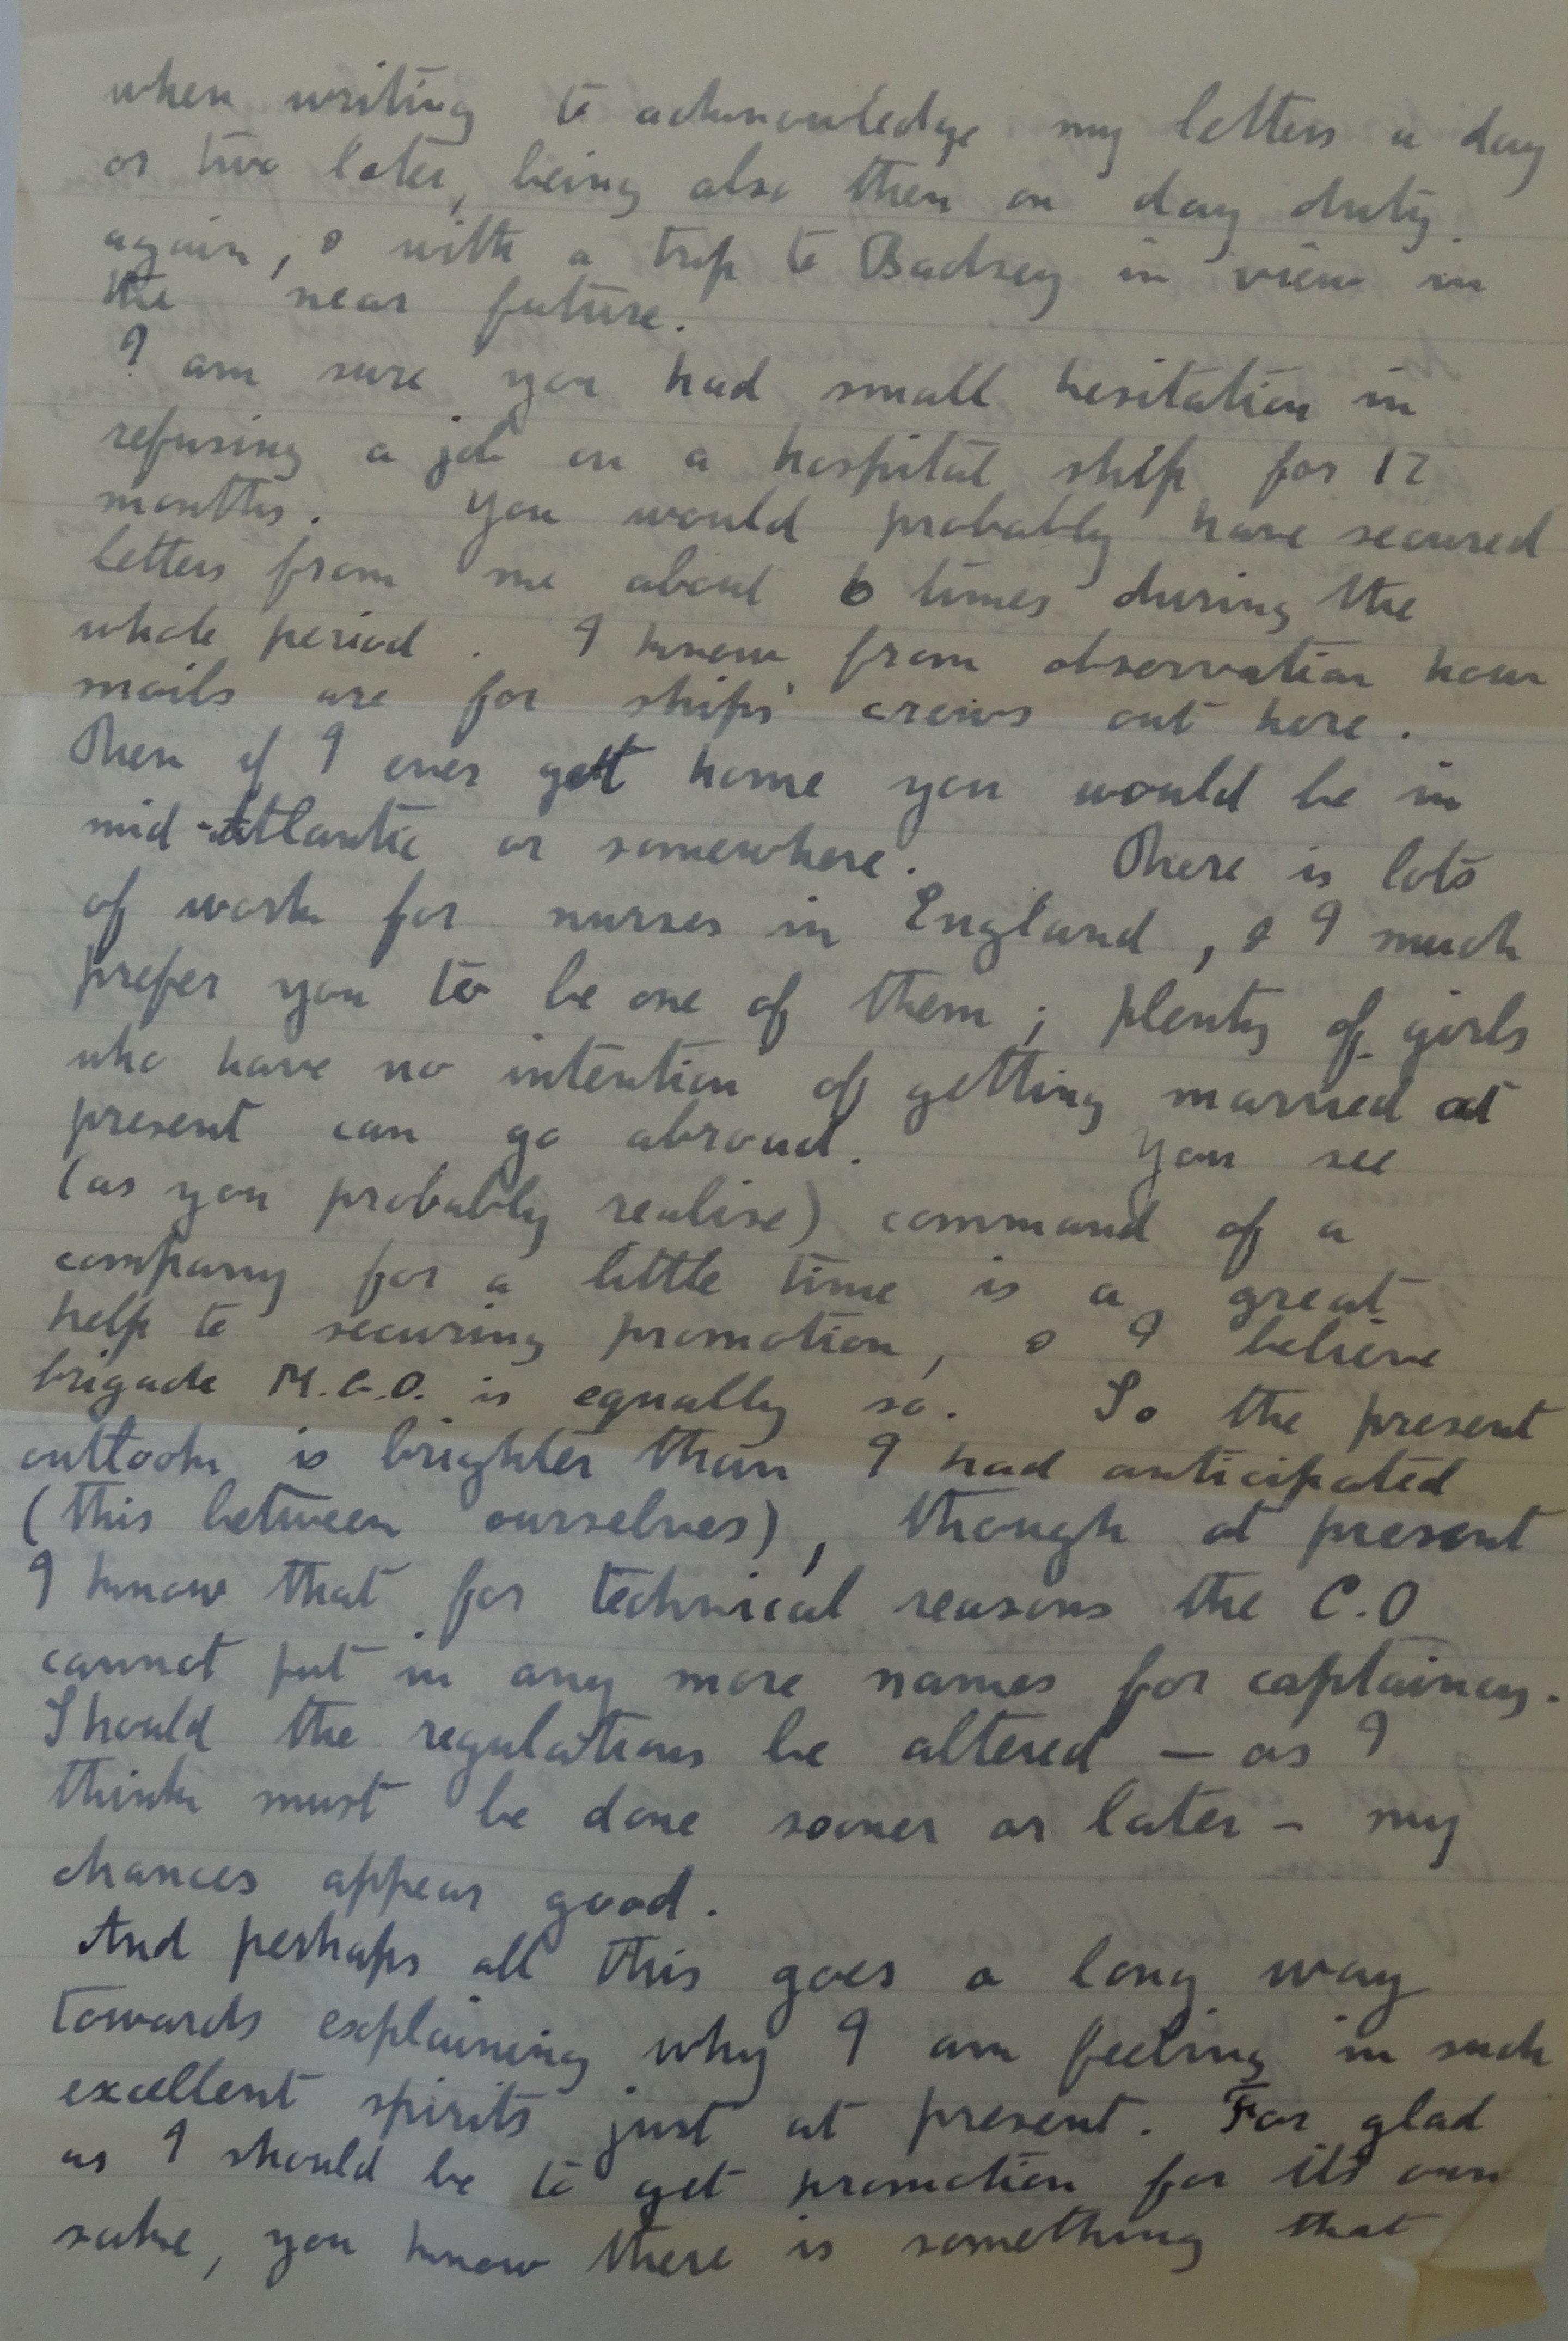 when writing to acknowledge my letters a day
or two later, being also then on day duty
again, & with a trip to Badsey in view in
the near future.
I am sure you had small hesitation in
refusing a job on a hospital ship for 12
months. You would probably have secured
letters from me about 6 times during the
whole period. I know from observation how
mails are for ships' crews out here.
Then if I ever get home you would be in
mid-Atlantic or somewhere. There is lots
of work for nurses in England, & I much
prefer you to be one of them; plenty of girls
who have no intention of getting married at
present can go abroad. You see
(as you probably realise) command of a
company for a little time is a great
help to securing promotion, & I believe
brigade M.G.O. is equally so. So the present
outlook is brighter than I had anticipated
(this between ourselves), though at present
I know that for technical reasons the C.O
cannot put in any more names for captaincy.
Should the regulations be altered – as I
think must be done sooner or later – my
chances appear good.
And perhaps all this goes a long way
towards explaining why I am feeling in such
excellent spirits just at present. For glad
as I should be to get promotion for its own
sake, you know there is something that